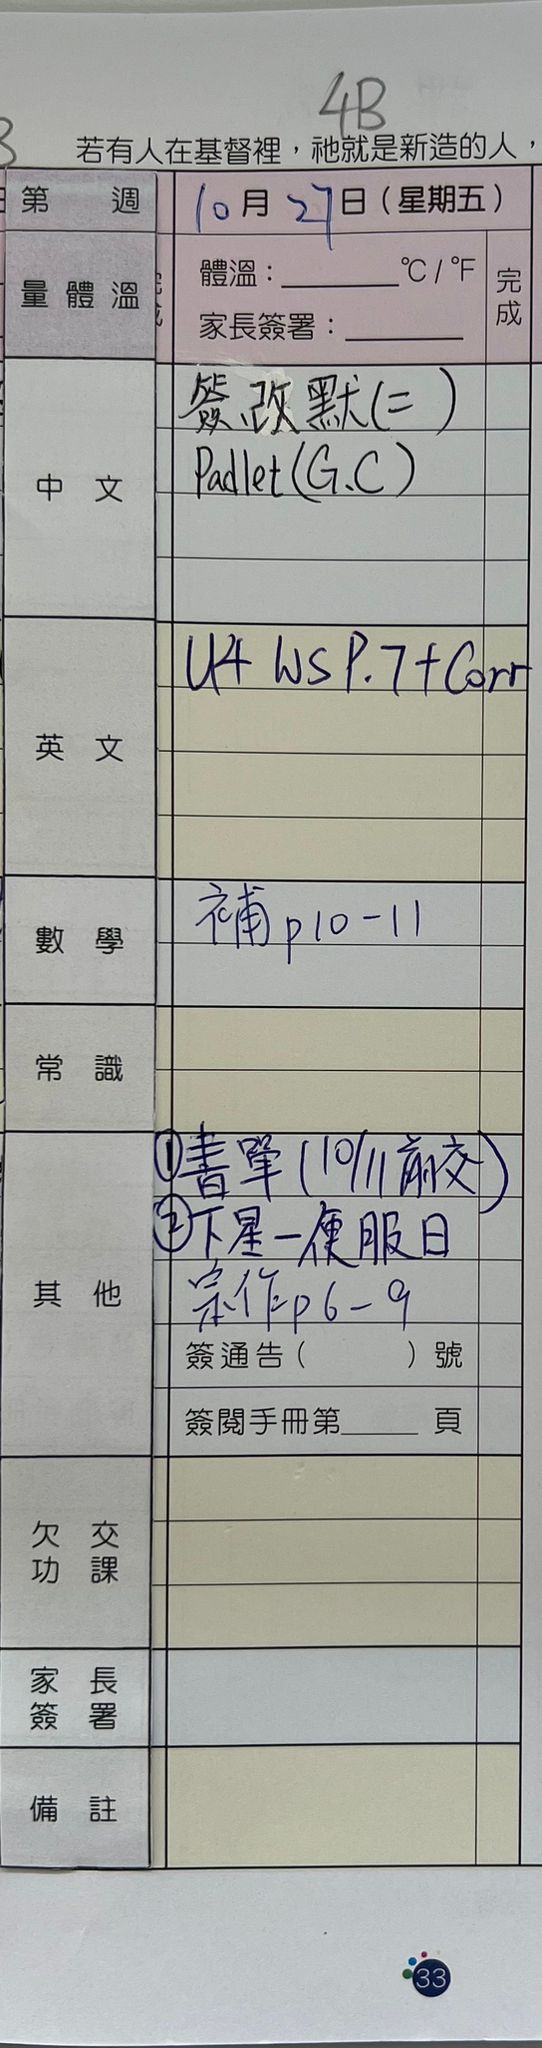 4B
若有人在基督裡，祂就是新造的人，
第 週
10月27日（星期五）
量體溫
體溫：______°C / °F
家長簽署：______
完成
中文
簽改默(二)
Padlet(G.C)
英文
U4 WS P.7+Corr
數學
補p10-11
常識
其他
①書單(10/11前交)
②下星一便服日
宗作p6-9
簽通告（ ）號
簽閱手冊第____頁
欠交
功課
家長
簽署
備註
33